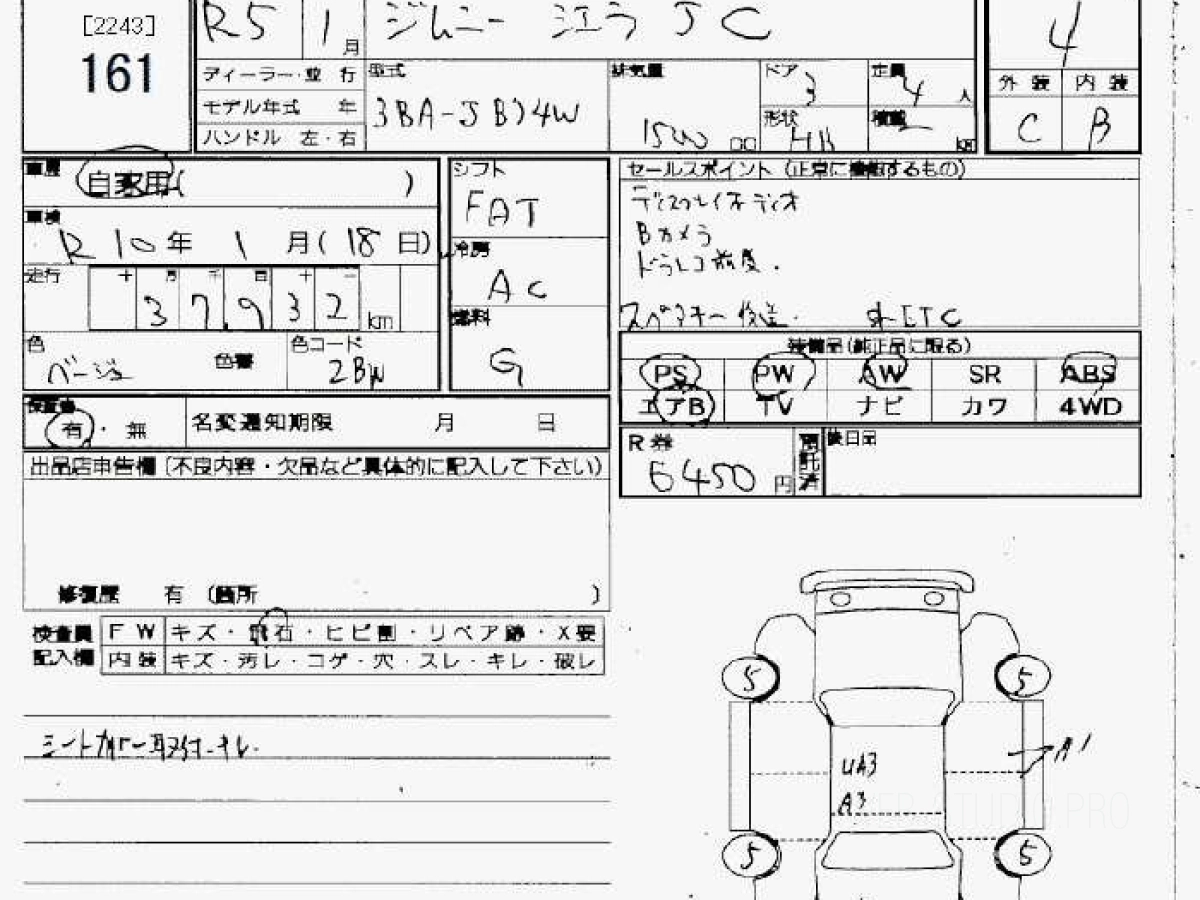 [2243]
161
R5 1月 ジムニー シエラ JC
4
ディーラー・並 行
モデル年式 年
ハンドル 左・右
型式
3BA-JB74W
排気量
1500 cc
ドア
3
定員
4 人
形状
HB
積載
kg
外 装 内 装
C B
車歴
自家用( )
車検
R 10年 1 月(18日)
走行
十 万 千 百 十 一
37,932 km
色
ベージュ
色替
色コード
2BW
シフト
FAT
冷房
AC
燃料
G
セールスポイント (正常に機能するもの)
ディスプレイオーディオ
Bカメラ
ドラレコ前後.
スペアキー 後送. ETC
装備品(純正品に限る)
PS PW AW SR ABS
エアB TV ナビ カワ 4WD
保証書
有・無
名変通知期限 月 日
R券
6450円
預託済
後日品
出品店申告欄(不良内容・欠品など具体的に記入して下さい)
修復歴 有 (箇所 )
検査員
記入欄
FW キズ・飛石・ヒビ割・リペア跡・X要
内装 キズ・汚レ・コゲ・穴・スレ・キレ・破レ
シートカバー取付キレ.
5 5
A1
UA3
A3
5 5